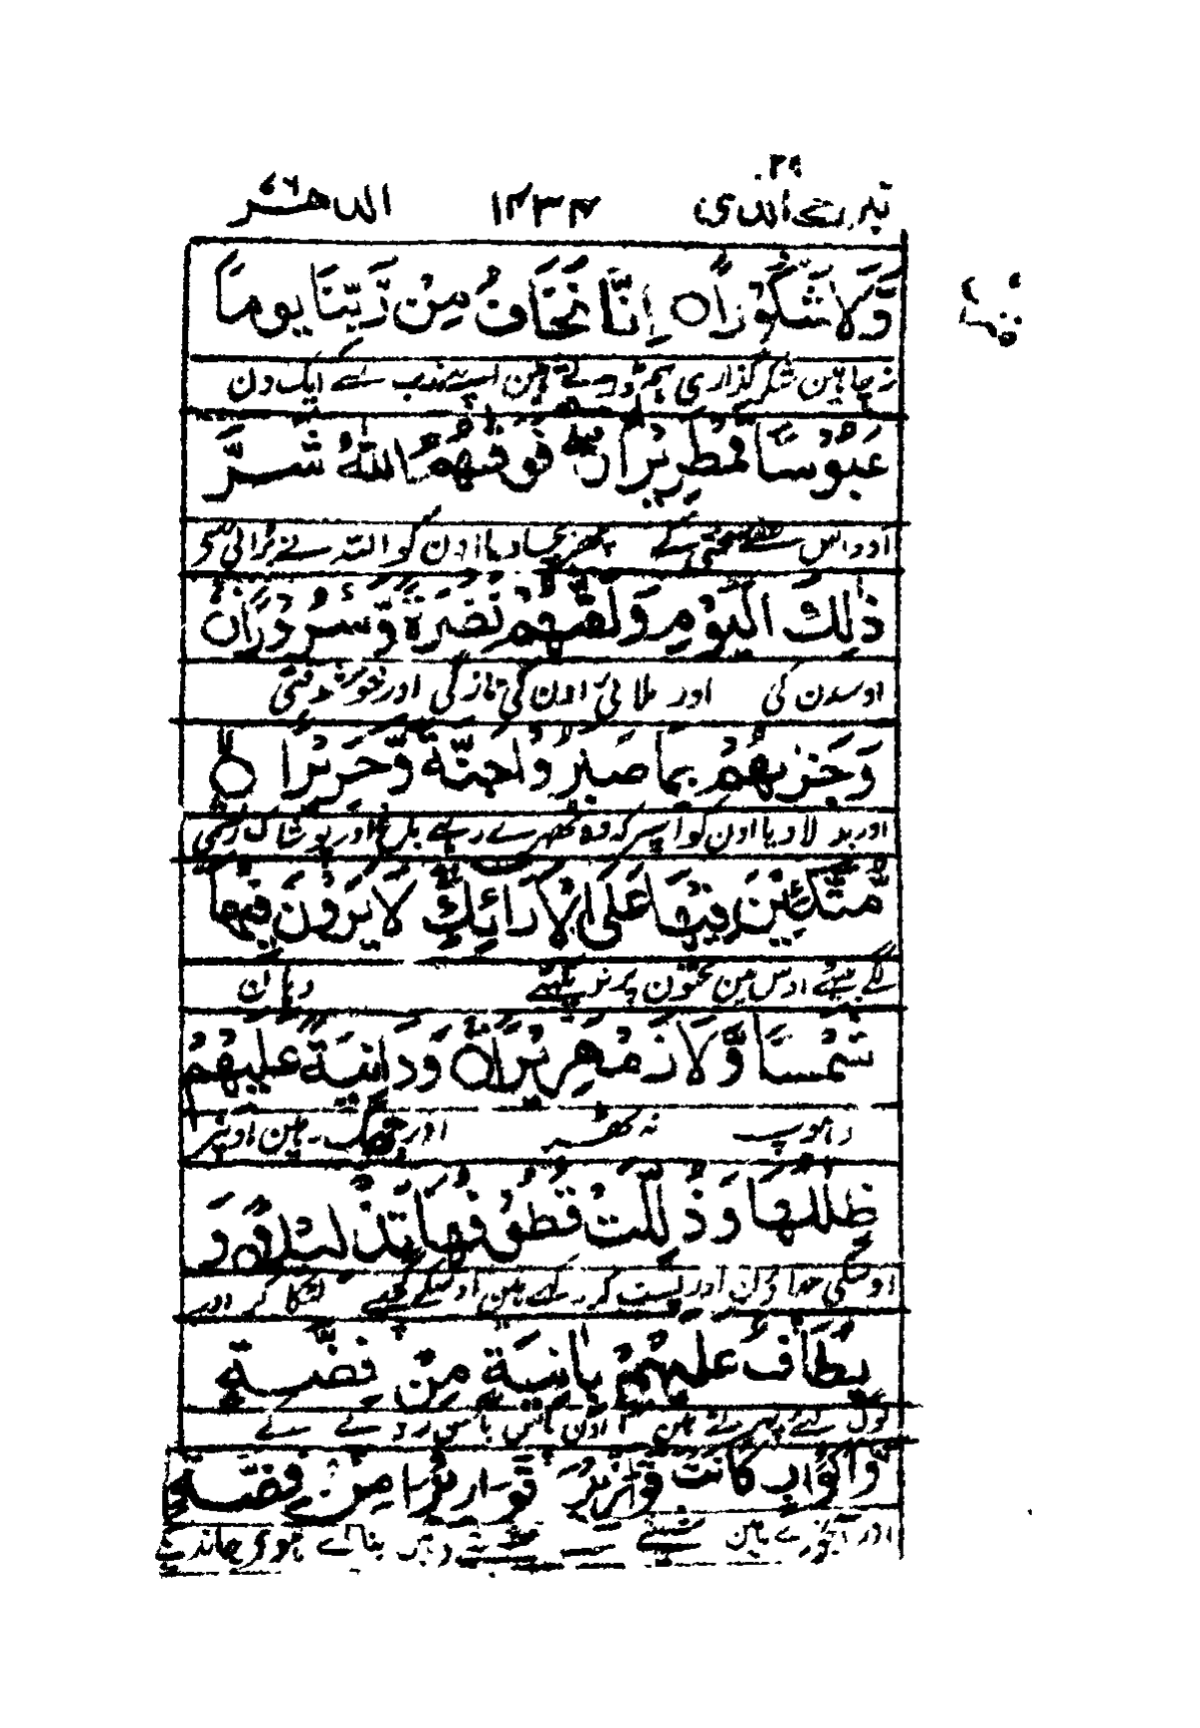 ٢٩
تبرك الذي ١٢٣٤ الدهر ٧٦
وَّلَا شُكُوْرًا ○ اِنَّا نَخَافُ مِنْ رَّبِّنَا يَوْمًا
نہ چاہین شکر گذاری ہم ڈرتے ہین اپنے رب سے ایک دن
عَبُوْسًا قَمْطَرِيْرًا ○ فَوَقٰهُمُ اللّٰهُ شَرَّ
اوداس سے سختی کے پھر بچا دیا اون کو اللہ نے برائی سی
ذٰلِكَ الْيَوْمِ وَلَقّٰهُمْ نَضْرَةً وَّسُرُوْرًا ○
اوسدن کی اور ملائی اون کی تازگی اور خوش وقتی
وَجَزٰىهُمْ بِمَا صَبَرُوْا جَنَّةً وَّحَرِيْرًا ○
اور بدلا دیا اون کو اسپر کہ وہ ٹھہرے رہے باغ اور پوشاک ریشمی
مُّتَّكِـِٕيْنَ فِيْهَا عَلَى الْاَرَآئِكِ لَا يَرَوْنَ فِيْهَا
لگے بیٹھے اوس مین تختون پر نہ دیکھتے وہان
شَمْسًا وَّلَا زَمْهَرِيْرًا ○ وَدَانِيَةً عَلَيْهِمْ
دھوپ نہ ٹھر اور جھک رہین اونپر
ظِلٰلُهَا وَذُلِّلَتْ قُطُوْفُهَا تَذْلِيْلًا ○ وَ
اوسکی چھاؤن اور پست کر رکھے ہین اوسکے گچھے لٹکا کر اور
يُطَافُ عَلَيْهِمْ بِاٰنِيَةٍ مِّنْ فِضَّةٍ
لوگ لئے پھرتے ہین اون پاس باسن روپے کے
وَّاَكْوَابٍ كَانَتْ قَوَارِيْرَا۟ قَوَارِيْرَا۟ مِنْ فِضَّةٍ
اور آبخورے ہین شیشے کے شیشے وہ بنائے ہوئے چاندی